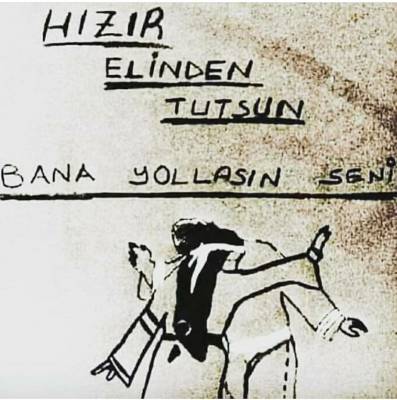 HIZIR
ELİNDEN
TUTSUN
BANA YOLLASIN SENİ